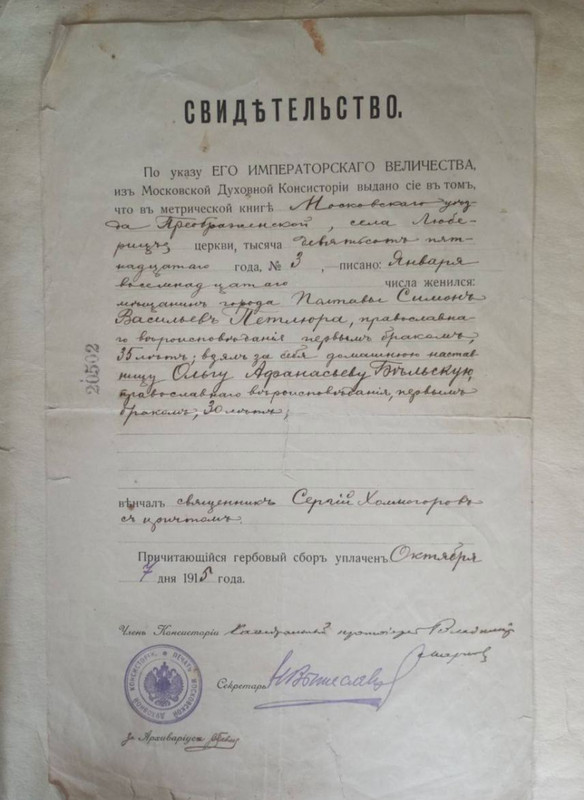 СВИДѢТЕЛЬСТВО.
По указу ЕГО ИМПЕРАТОРСКАГО ВЕЛИЧЕСТВА,
изъ Московской Духовной Консисторіи выдано сіе въ томъ,
что въ метрической книгѣ Московскаго уѣз-
да Преображенской, села Любе-
рицъ церкви, тысяча девятьсотъ пят-
надцатаго года, № 3, писано: Января
восемнадцатаго числа женился:
мѣщанинъ города Полтавы Симонъ
Васильевъ Петлюра, православна-
го вѣроисповѣданія первымъ бракомъ,
35 лѣтъ; взялъ за себя домашнюю настав-
ницу Ольгу Афанасьеву Бѣльскую,
православнаго вѣроисповѣданія, первымъ
бракомъ; 30 лѣтъ;
20502
вѣнчалъ священникъ Сергій Холмогоровъ
съ причтомъ.
Причитающійся гербовый сборъ уплаченъ Октября
7 дня 1915 года.
Членъ Консисторіи Каѳедральный протоіерей
Секретарь
ПЕЧАТЬ МОСКОВСКОЙ ДУХОВНОЙ КОНСИСТОРІИ
За Архиваріуса